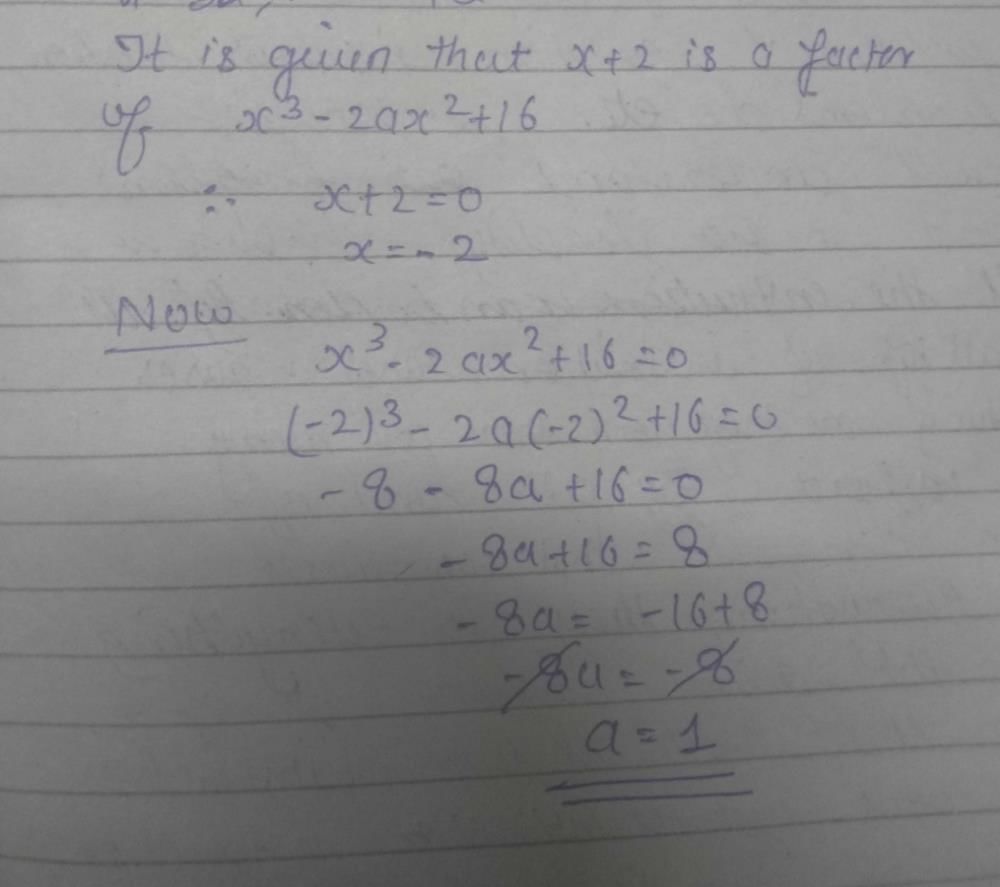 It is given that x+2 is a factor
of x³ - 2ax² + 16
∴ x+2=0
x = -2
Now
x³ - 2ax² + 16 = 0
(-2)³ - 2a(-2)² + 16 = 0
-8 - 8a + 16 = 0
-8a + 16 = 8
-8a = -16+8
-8a = -8
a = 1